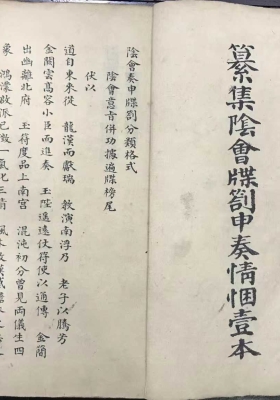 纂集陰會牒劄申奏情悃壹本
陰會奏申牒劄分類格式
陰會意旨併功據適牒榜尾
伏以
道自東來從 龍漢而獻瑞 教演南浮乃 老子以騰芳
金闕雲高容小臣而進奏 玉陛遙遠仗符使以通傳 金簡
出幽離北府 玉符度品上南宮 混沌初分曾見兩儀生四
象 鴻濛啟泒已散一氣化三清